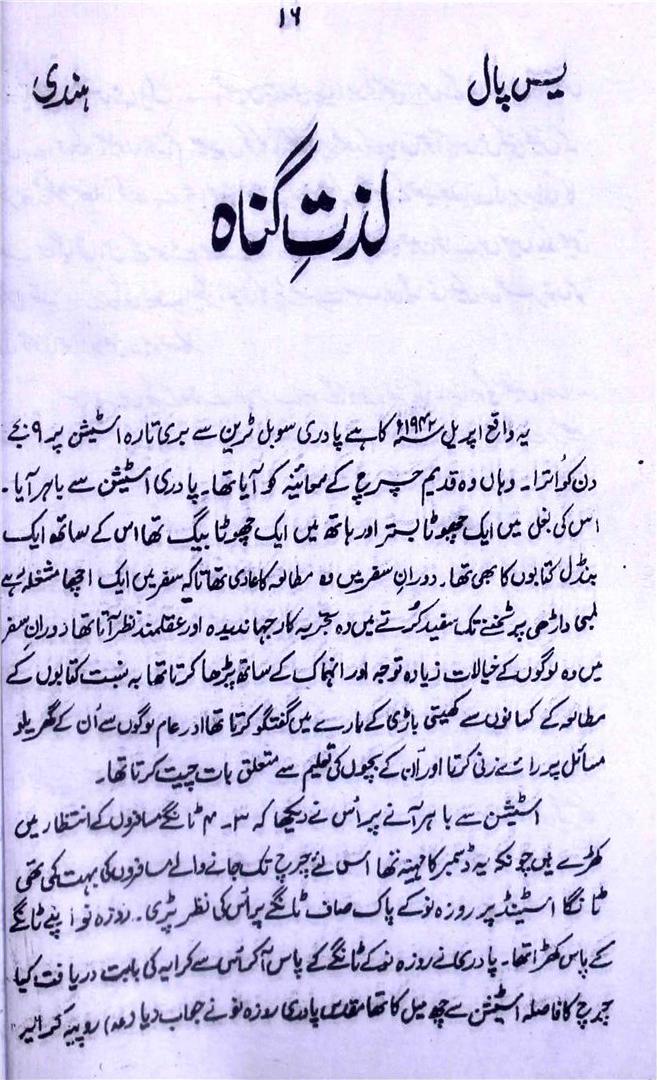 ۱۶
یس پال ہندی
لذتِ گناہ
یہ واقع اپریل ۱۹۴۲ء کا ہے پادری سوبل ٹرین سے ہری تارہ اسٹیشن پر ۹ بجے
دن کو اترا۔ وہاں وہ قدیم چرچ کے معائنہ کو آیا تھا۔ پادری اسٹیشن سے باہر آیا۔
اس کی بغل میں ایک چھوٹا بستر اور ہاتھ میں ایک چھوٹا بیگ تھا اس کے ساتھ ایک
بنڈل کتابوں کا بھی تھا۔ دورانِ سفر میں وہ مطالعہ کا عادی تھا تاکہ سفر میں ایک اچھا مشغلہ رہے
لمبی داڑھی پر ٹخنے تک سفید کُرتے میں وہ تجربہ کار جہاندیدہ اور عقلمند نظر آتا تھا دورانِ سفر
میں وہ لوگوں کے خیالات زیادہ توجہ اور انہماک کے ساتھ پڑھا کرتا تھا بہ نسبت کتابوں کے
مطالعہ کے کسانوں سے کھیتی باڑی کے بارے میں گفتگو کرتا تھا اور عام لوگوں سے اُن کے گھریلو
مسائل پر رائے زنی کرتا اور اُن کے بچوں کی تعلیم سے متعلق بات چیت کرتا تھا۔
اسٹیشن سے باہر آنے پر اُس نے دیکھا کہ ۳۔۴ ٹانگے مسافروں کے انتظار میں
کھڑے ہیں چونکہ یہ ڈسمبر کا مہینہ تھا اس لئے چرچ تک جانے والے مسافروں کی بہت کمی تھی
ٹانگا اسٹینڈ پر روزہ نو کے پاک صاف ٹانگے پر اُس کی نظر پڑی۔ روزہ نو اپنے ٹانگے
کے پاس کھڑا تھا۔ پادری نے روزہ نو کے ٹانگے کے پاس آکر اُس سے کرایہ کی بابت دریافت کیا
چرچ کا فاصلہ اسٹیشن سے چھ میل کا تھا مقدس پادری روزہ نو نے جواب دیا روپیہ کرایہ